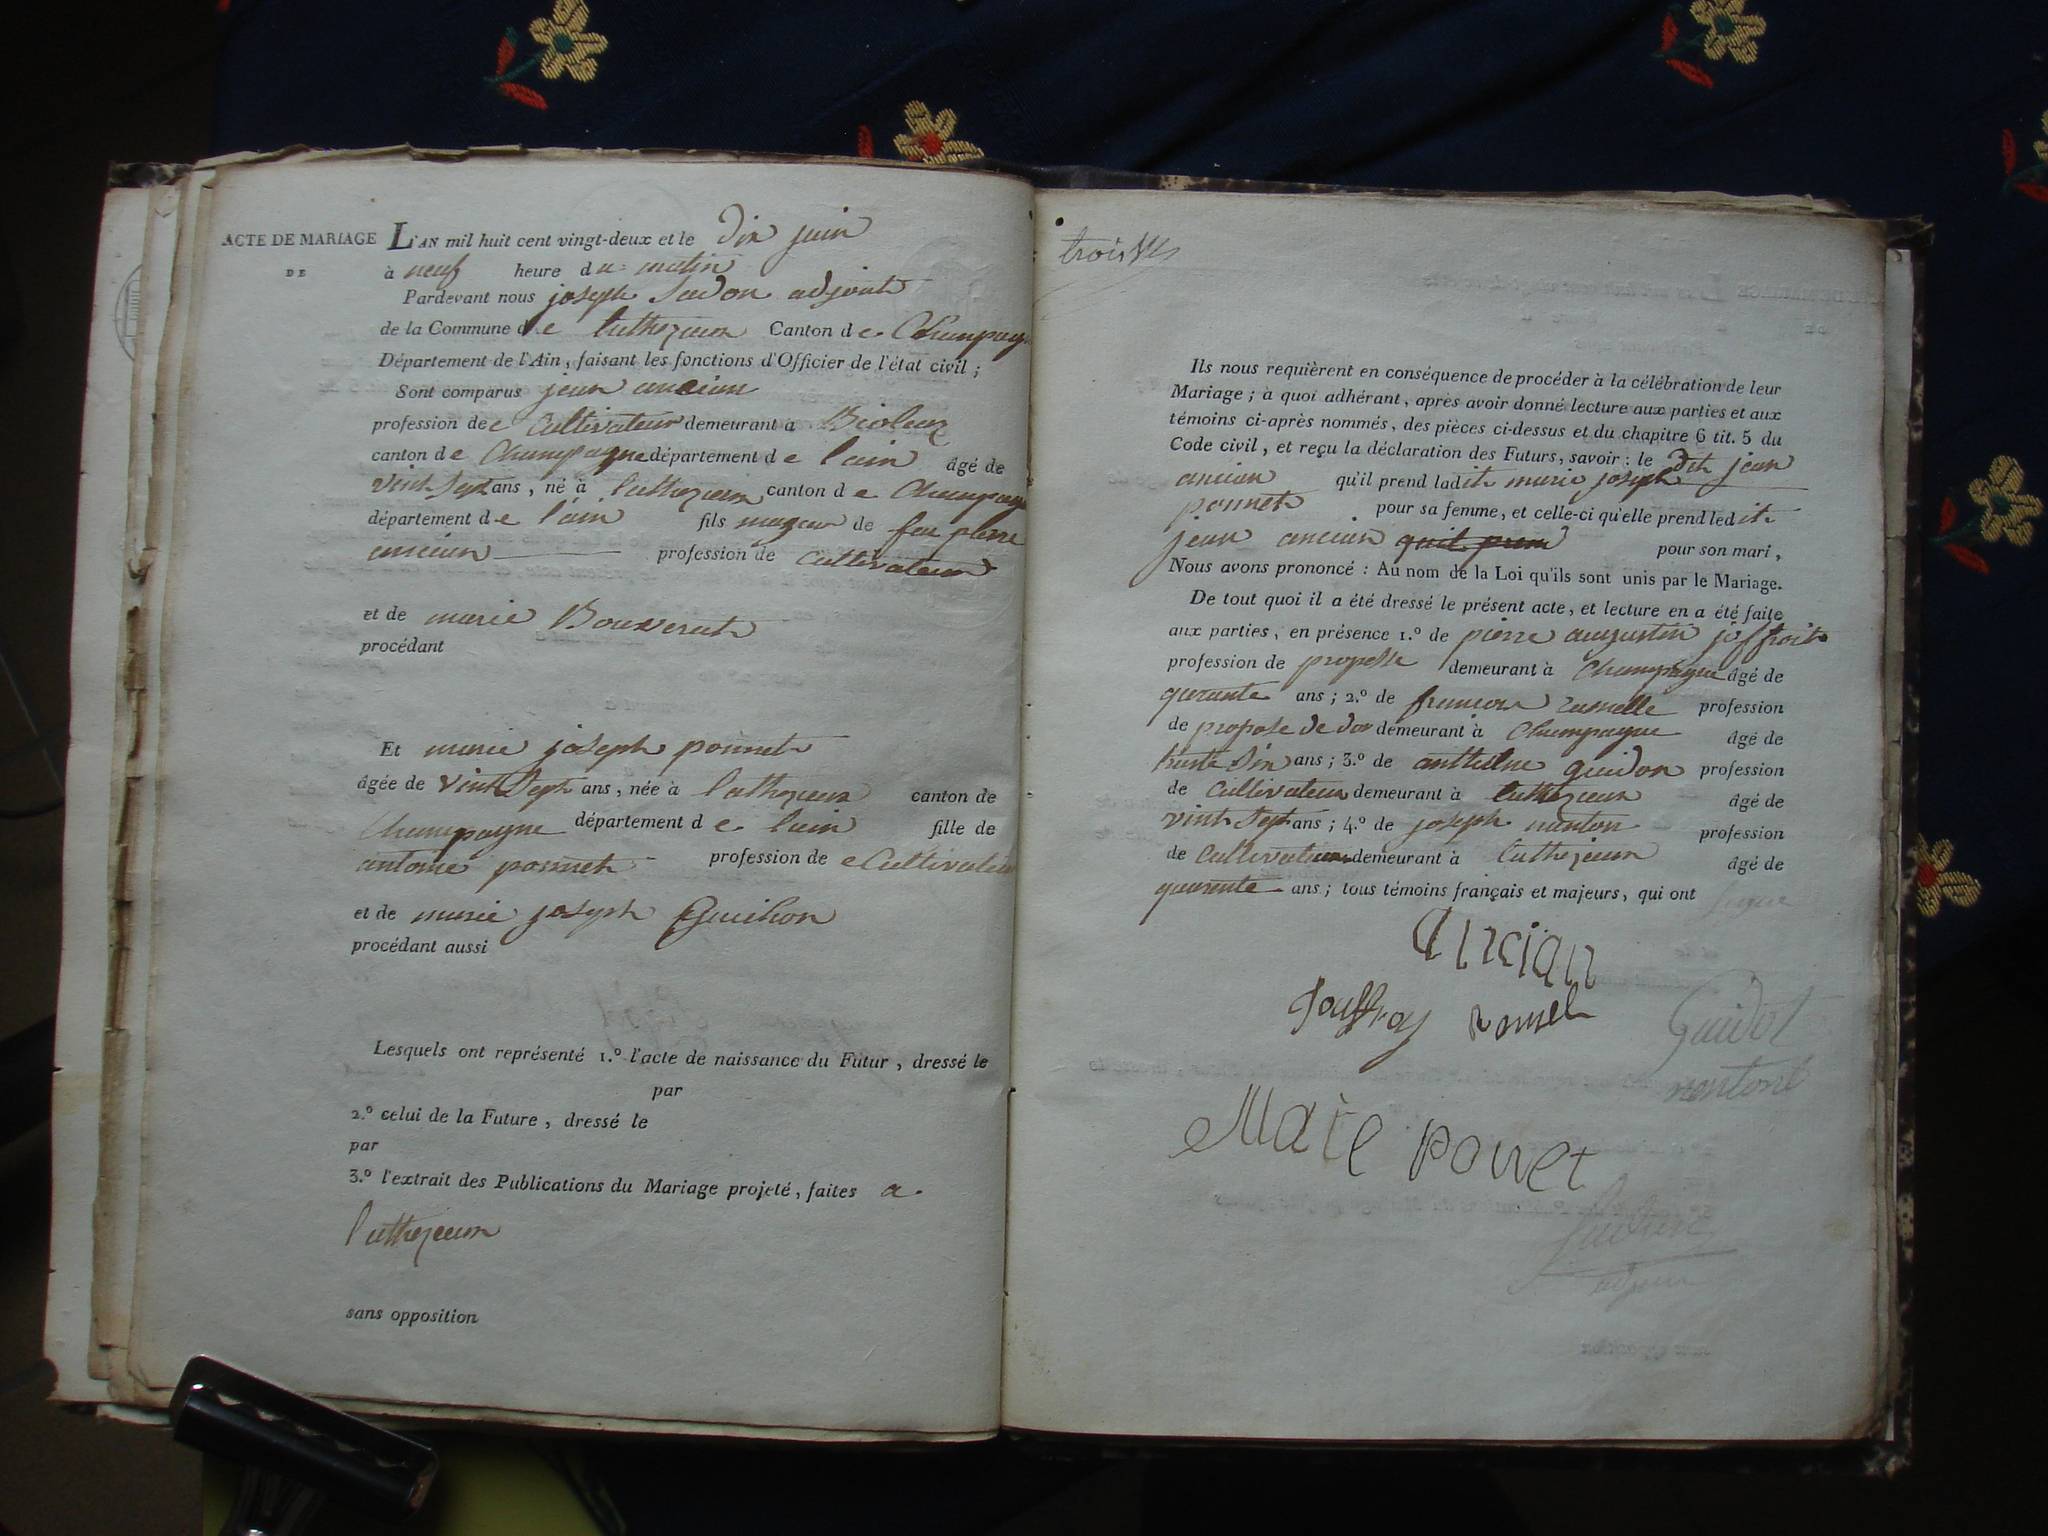 ACTE DE MARIAGE
DE
L'AN mil huit cent vingt-deux et le dix juin
à neuf heure du matin
Pardevant nous joseph Sudon adjoint
de la Commune de luthezieux Canton de Champagn
Département de l'Ain, faisant les fonctions d'Officier de l'état civil ;
Sont comparus jean ancian
profession de e Cultivateur demeurant à
canton de Champagne département de lain âgé de
vint sept ans, né à luthezieux canton de Champagne
département de lain fils mageur de feu pierre
ancian profession de Cultivateur
et de marie Bouverat
procédant
Et marie joseph ponnet
âgée de vint Sept ans, née à luthezieux canton de
Champagne département de lain fille de
antoine ponnet profession de e Cultivateur
et de marie joseph
procédant aussi
Lesquels ont représenté 1.º l'acte de naissance du Futur, dressé le
par
2.º celui de la Future, dressé le
par
3.º l'extrait des Publications du Mariage projeté, faites a
luthezieux
sans opposition
trois
Ils nous requièrent en conséquence de procéder à la célébration de leur
Mariage ; à quoi adhérant, après avoir donné lecture aux parties et aux
témoins ci-après nommés, des pièces ci-dessus et du chapitre 6 tit. 5 du
Code civil, et reçu la déclaration des Futurs, savoir : le dit jean
ancian qu'il prend ladite marie joseph
ponnet pour sa femme, et celle-ci qu'elle prend ledit
jean ancian quil pren pour son mari,
Nous avons prononcé : Au nom de la Loi qu'ils sont unis par le Mariage.
De tout quoi il a été dressé le présent acte, et lecture en a été faite
aux parties, en présence 1.º de pierre augustin joffroit
profession de demeurant à Champagne âgé de
quarante ans ; 2.º de francois profession
de propose de demeurant à Champagne âgé de
trente Six ans ; 3.º de anthelme guidon profession
de Cultivateur demeurant à luthezieux âgé de
vint Sept ans ; 4.º de joseph nanton profession
de Cultivateur demeurant à luthezieux âgé de
quarante ans ; tous témoins français et majeurs, qui ont signé
Ancian
Jouffroy
Guidot
Marie ponnet
adjoin